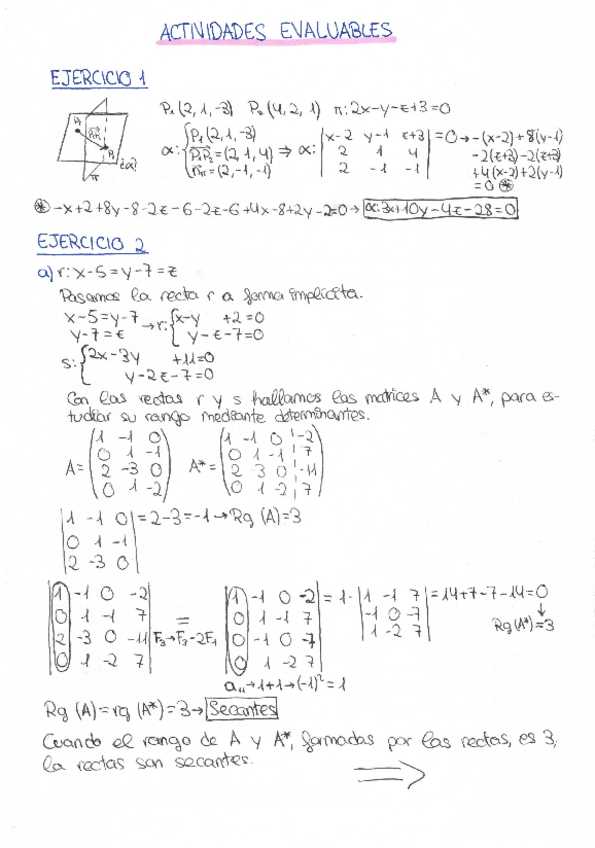 ACTIVIDADES EVALUABLES
EJERCICIO 1
P₁(2,1,-3) P₂(4,2,1) π: 2x-y-z+3=0
α: { P₁(2,1,-3) P₁P₂=(2,1,4) n⃗π=(2,-1,-1) ⇒ α: | x-2 y-1 z+3 | 2 1 4 | 2 -1 -1 | =0 → -(x-2)+8(y-1)
-2(z+3)-2(z+3)
+4(x-2)+2(y-1)
=0 ⊛
⊛ -x+2+8y-8-2z-6-2z-6+4x-8+2y-2=0 → α: 3x+10y-4z-28=0
EJERCICIO 2
a) r: x-5=y-7=z
Pasamos la recta r a forma implícita.
x-5=y-7 → r: { x-y +2=0
y-7=z y-z-7=0
s: { 2x-3y +11=0
y-2z-7=0
Con las rectas r y s hallamos las matrices A y A*, para es-
tudiar su rango mediante determinantes.
A= ( 1 -1 0 | 0 1 -1 | 2 -3 0 | 0 1 -2 ) A*= ( 1 -1 0 -2 | 0 1 -1 7 | 2 3 0 -11 | 0 1 -2 7 )
| 1 -1 0 | = 2-3=-1 → Rg (A)=3
0 1 -1
2 -3 0
| 1 -1 0 -2 | 0 1 -1 7 | 2 -3 0 -11 | 0 1 -2 7 | F₃→F₃-2F₁ = | 1 -1 0 -2 | 0 1 -1 7 | 0 -1 0 -7 | 0 1 -2 7 | = 1· | 1 -1 7 | -1 0 -7 | 1 -2 7 | =14+7-7-14=0
↓
Rg(A*)=3
a₁₁→1+1→(-1)²=1
Rg (A)=rg (A*)=3→ Secantes
Cuando el rango de A y A*, formadas por las rectas, es 3,
la rectas son secantes.